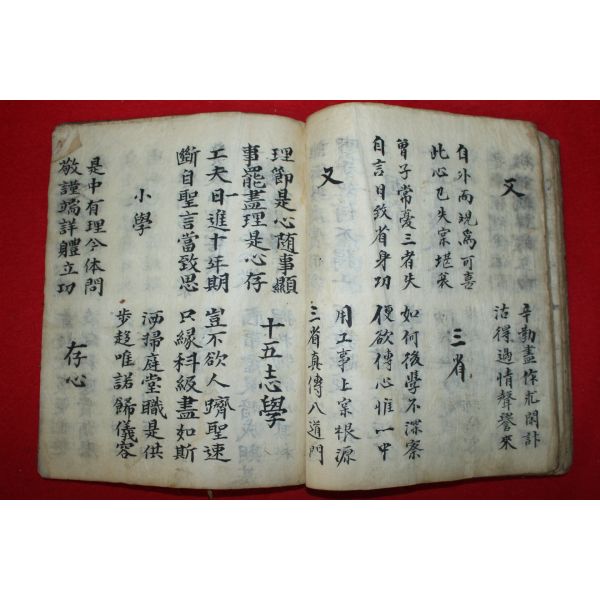 又
辛勤盡作忙閑計
沽得過情聲譽來
自外而現爲可喜
此心已失寔堪哀
三省
曾子常憂三者失
自言日致省身功
如何後學不深察
便欲傳心惟一中
又
用工事上寔根源
三省真傳八道門
理節是心隨事顯
事罷盡理是心存
十五志學
工夫日進十年期
斷自聖言當致思
豈不欲人躋聖速
只緣科級盡如斯
小學
洒掃庭堂職是供
步趨唯諾歸儀容
是中有理今体問
敬謹端詳體立功
存心